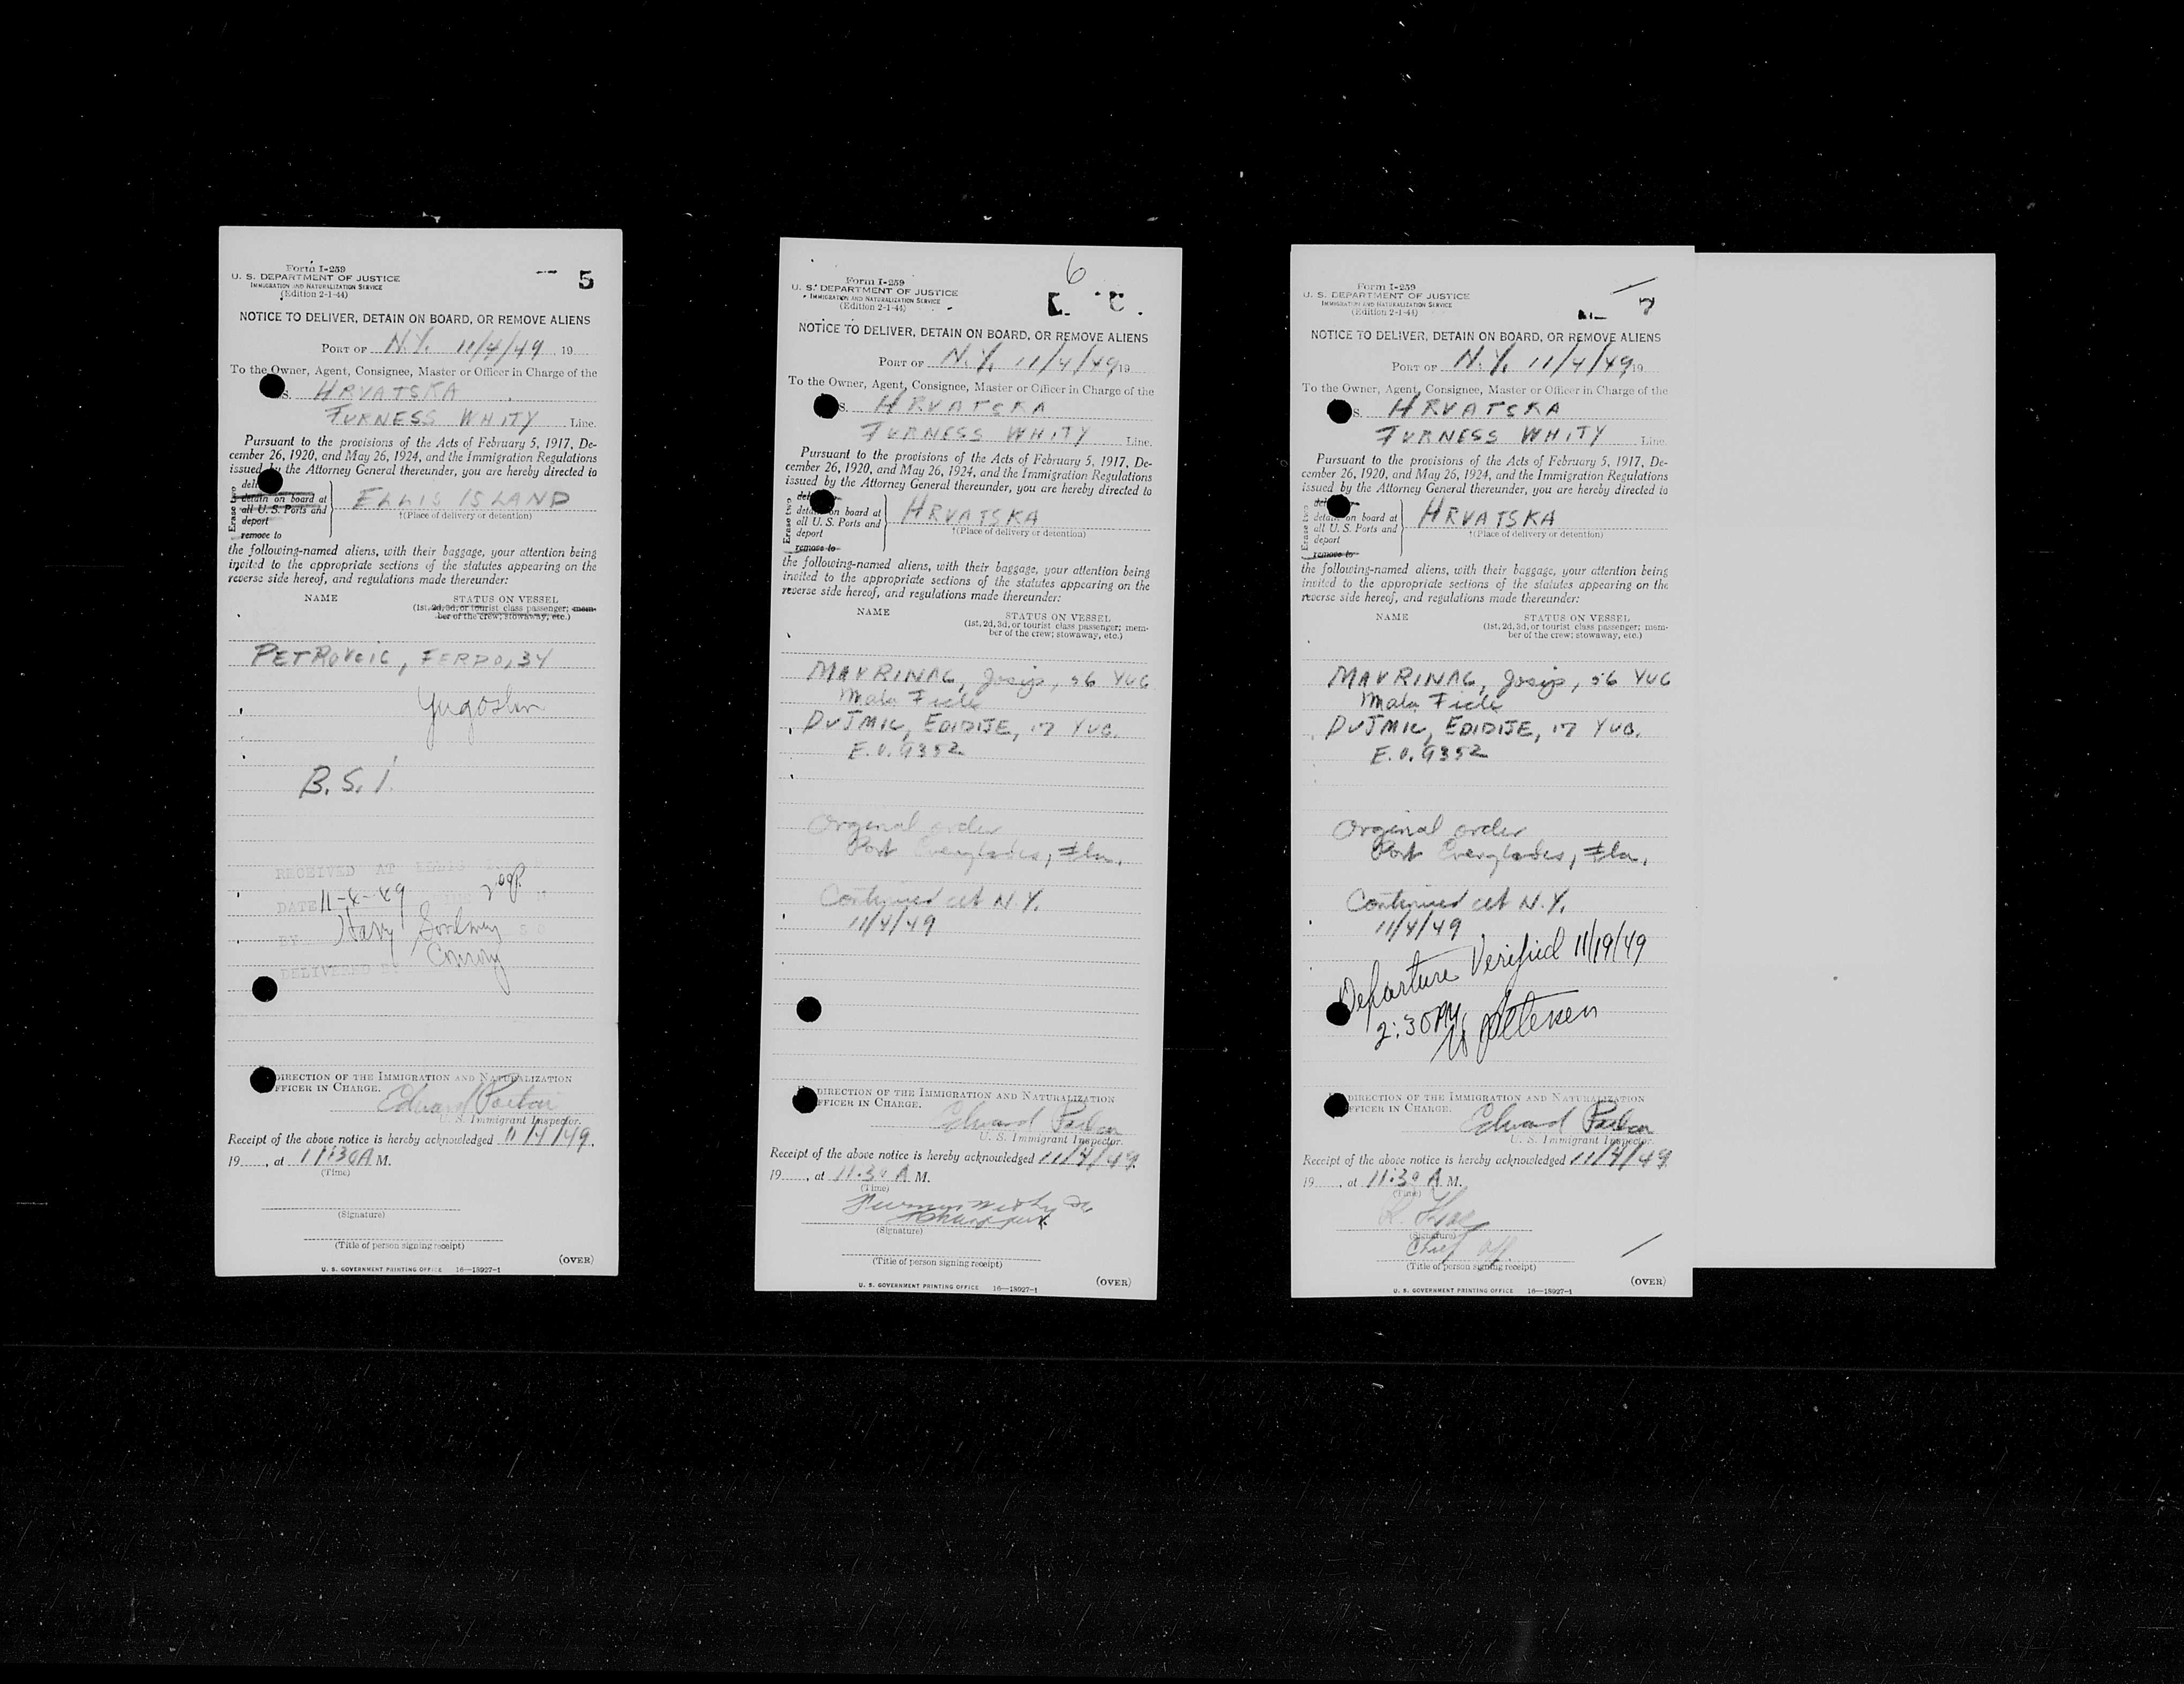 5
Form I-259
U. S. DEPARTMENT OF JUSTICE
IMMIGRATION AND NATURALIZATION SERVICE
(Edition 2-1-44)
NOTICE TO DELIVER, DETAIN ON BOARD, OR REMOVE ALIENS
PORT OF N.Y. 11/4/49, 19
To the Owner, Agent, Consignee, Master or Officer in Charge of the
S. HRVATSKA
FURNESS WHITY Line.
Pursuant to the provisions of the Acts of February 5, 1917, De-
cember 26, 1920, and May 26, 1924, and the Immigration Regulations
issued by the Attorney General thereunder, you are hereby directed to
Erase two
detain on board at ELLIS ISLAND
all U. S. Ports and †(Place of delivery or detention)
deport
remove to
the following-named aliens, with their baggage, your attention being
invited to the appropriate sections of the statutes appearing on the
reverse side hereof, and regulations made thereunder:
NAME STATUS ON VESSEL
(1st, 2d, 3d, or tourist class passenger; mem-
ber of the crew; stowaway, etc.)
PETROVCIC, FERDO, 34
Yugoslav
B.S.I.
RECEIVED AT ELLIS
DATE 11-4-49 2 00 P
BY Harry
DELIVERED BY Conroy
DIRECTION OF THE IMMIGRATION AND NATURALIZATION
OFFICER IN CHARGE.
Edward
U. S. Immigrant Inspector.
Receipt of the above notice is hereby acknowledged 11/4/49.
19, at 11:30 A M.
(Time)
(Signature)
(Title of person signing receipt)
(OVER)
U. S. GOVERNMENT PRINTING OFFICE 16—18927-1
6
Form I-259
U. S. DEPARTMENT OF JUSTICE
IMMIGRATION AND NATURALIZATION SERVICE
(Edition 2-1-44)
NOTICE TO DELIVER, DETAIN ON BOARD, OR REMOVE ALIENS
PORT OF N.Y. 11/4/49, 19
To the Owner, Agent, Consignee, Master or Officer in Charge of the
S. HRVATSKA
FURNESS WHITY Line.
Pursuant to the provisions of the Acts of February 5, 1917, De-
cember 26, 1920, and May 26, 1924, and the Immigration Regulations
issued by the Attorney General thereunder, you are hereby directed to
Erase two
detain on board at HRVATSKA
all U. S. Ports and †(Place of delivery or detention)
deport
remove to
the following-named aliens, with their baggage, your attention being
invited to the appropriate sections of the statutes appearing on the
reverse side hereof, and regulations made thereunder:
NAME STATUS ON VESSEL
(1st, 2d, 3d, or tourist class passenger; mem-
ber of the crew; stowaway, etc.)
MAVRINAC, Josip, 56 YUG
Mala Fide
DUJMIC, EDIDIJE, 17 YUG.
E.O. 9352
Orginal order
Port Everglades, Fla.
Continued at N.Y.
11/4/49
DIRECTION OF THE IMMIGRATION AND NATURALIZATION
OFFICER IN CHARGE.
Edward
U. S. Immigrant Inspector.
Receipt of the above notice is hereby acknowledged 11/4/49.
19, at 11:30 A M.
(Time)
(Signature)
(Title of person signing receipt)
(OVER)
U. S. GOVERNMENT PRINTING OFFICE 16—18927-1
7
Form I-259
U. S. DEPARTMENT OF JUSTICE
IMMIGRATION AND NATURALIZATION SERVICE
(Edition 2-1-44)
NOTICE TO DELIVER, DETAIN ON BOARD, OR REMOVE ALIENS
PORT OF N.Y. 11/4/49, 19
To the Owner, Agent, Consignee, Master or Officer in Charge of the
S. HRVATSKA
FURNESS WHITY Line.
Pursuant to the provisions of the Acts of February 5, 1917, De-
cember 26, 1920, and May 26, 1924, and the Immigration Regulations
issued by the Attorney General thereunder, you are hereby directed to
Erase two
detain on board at HRVATSKA
all U. S. Ports and †(Place of delivery or detention)
deport
remove to
the following-named aliens, with their baggage, your attention being
invited to the appropriate sections of the statutes appearing on the
reverse side hereof, and regulations made thereunder:
NAME STATUS ON VESSEL
(1st, 2d, 3d, or tourist class passenger; mem-
ber of the crew; stowaway, etc.)
MAVRINAC, Josip, 56 YUG
Mala Fide
DUJMIC, EDIDIJE, 17 YUG.
E.O. 9352
Orginal order
Port Everglades, Fla.
Continued at N.Y.
11/4/49
Departure Verified 11/19/49
2:30 PM
DIRECTION OF THE IMMIGRATION AND NATURALIZATION
OFFICER IN CHARGE.
Edward
U. S. Immigrant Inspector.
Receipt of the above notice is hereby acknowledged 11/4/49.
19, at 11:30 A M.
(Time)
(Signature)
Chief Off.
(Title of person signing receipt)
(OVER)
U. S. GOVERNMENT PRINTING OFFICE 16—18927-1